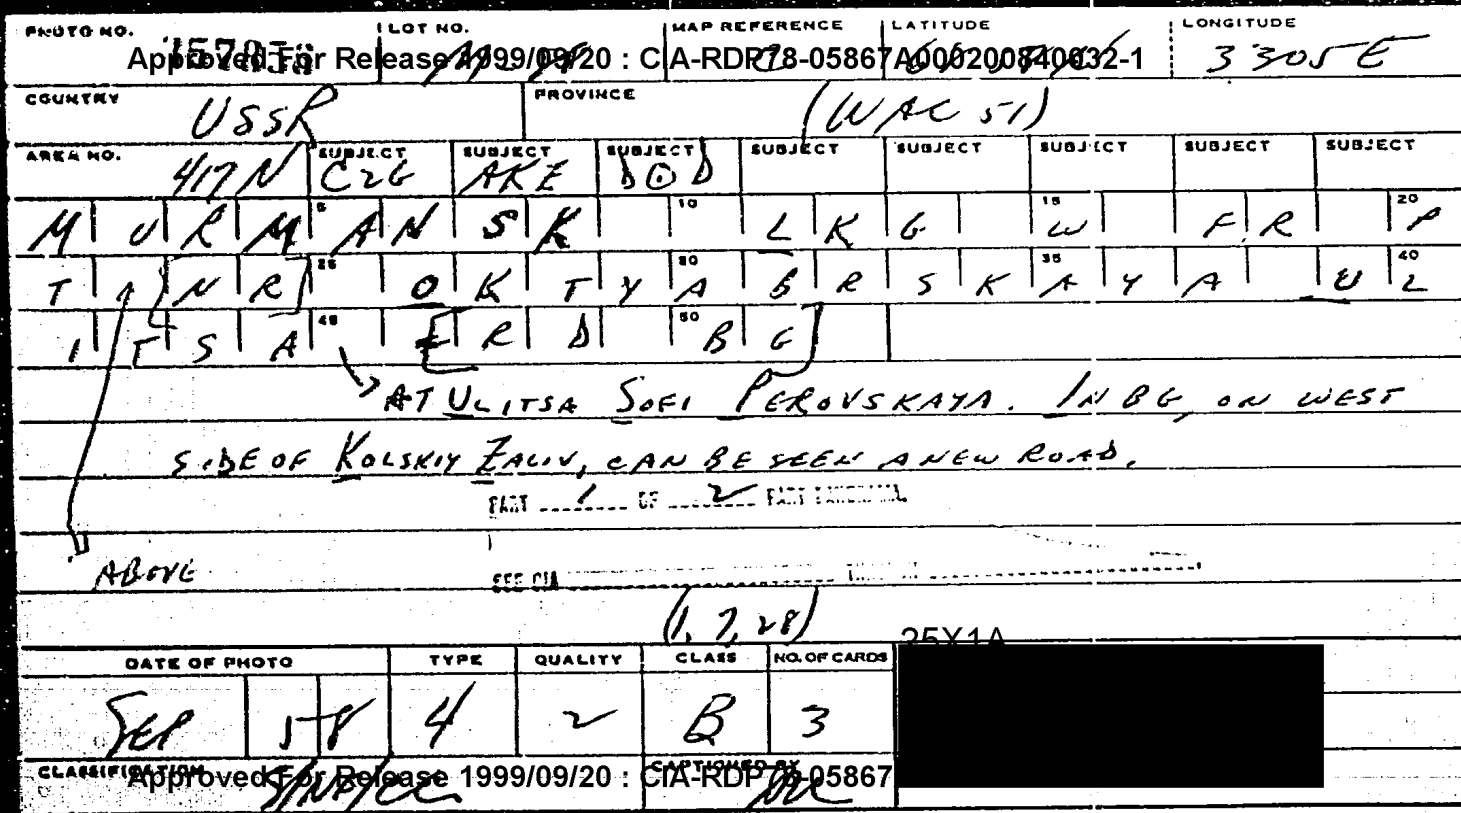 PHOTO NO. LOT NO. MAP REFERENCE LATITUDE LONGITUDE
Approved For Release 1999/09/20 : CIA-RDP78-05867A000200840032-1 3305E
COUNTRY USSR PROVINCE (WAC 51)
AREA NO. 417N SUBJECT C2G SUBJECT AKE SUBJECT DOD SUBJECT SUBJECT SUBJECT SUBJECT SUBJECT
5 10 15 20
MURMANSK LKG W FR P
25 30 35 40
T [NR] OKTYABRSKAYA UL
45 50
ITSA [ERD BG]
AT ULITSA SOFI PEROVSKAYA. IN BG, ON WEST
SIDE OF KOLSKIY ZALIV, CAN BE SEEN A NEW ROAD.
PART 1 OF 2 PART PANORAMA.
ABOVE
SEE CIA
(1, 7, 28)
25X1A
DATE OF PHOTO TYPE QUALITY CLASS NO. OF CARDS
SEP 58 4 2 B 3
CLASSIFICATION CAPTIONED BY
Approved For Release 1999/09/20 : CIA-RDP78-05867